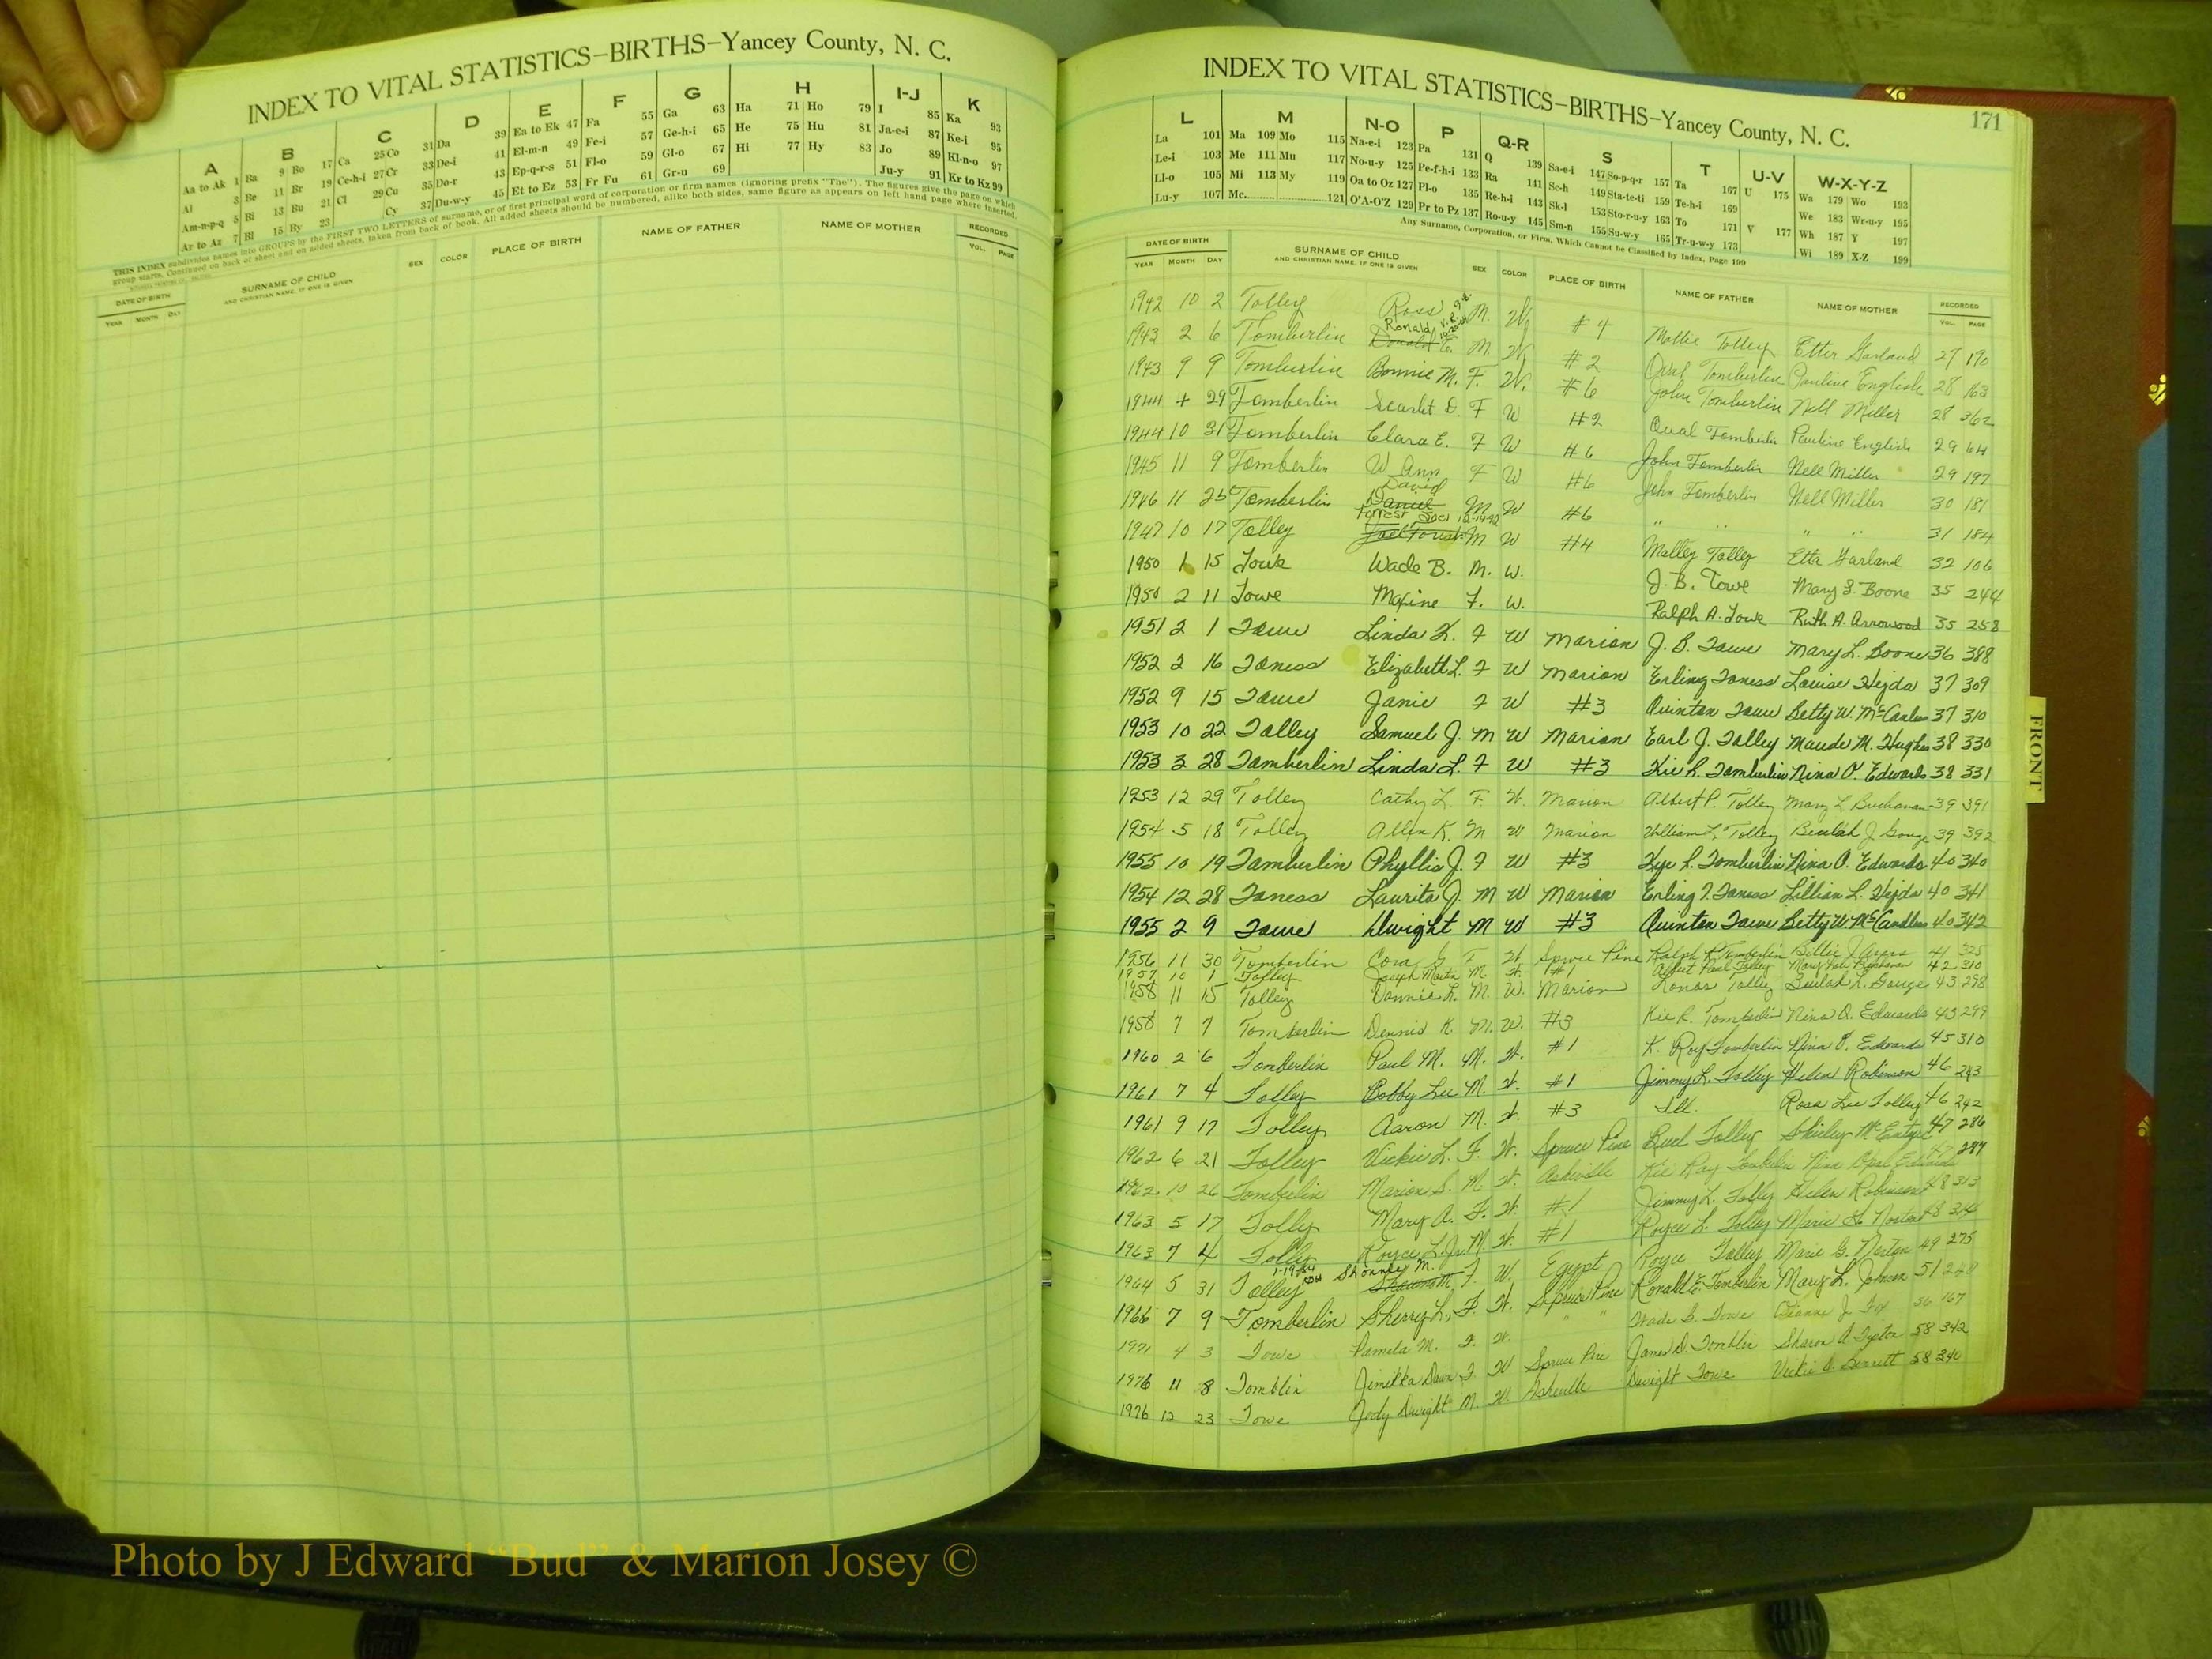 INDEX TO VITAL STATISTICS—BIRTHS—Yancey County, N. C.
A B C D E F G H I-J K
Aa to Ak 1 Ba 9 Bo 17 Ca 25 Co 31 Da 39 Ea to Ek 47 Fa 55 Ga 63 Ha 71 Ho 79 I 85 Ka 93
Al 3 Be 11 Br 19 Ce-h-i 27 Cr 33 De-i 41 El-m-n 49 Fe-i 57 Ge-h-i 65 He 75 Hu 81 Ja-e-i 87 Ke-i 95
Am-n-p-q 5 Bi 13 Bu 21 Cl 29 Cu 35 Do-r 43 Ep-q-r-s 51 Fl-o 59 Gl-o 67 Hi 77 Hy 83 Jo 89 Kl-n-o 97
Ar to Az 7 Bl 15 By 23 Cy 37 Du-w-y 45 Et to Ez 53 Fr Fu 61 Gr-u 69 Ju-y 91 Kr to Kz 99
THIS INDEX subdivides names into GROUPS by the FIRST TWO LETTERS of surname, or of first principal word of corporation or firm names (ignoring prefix "The"). The figures give the page on which
group starts. Continued on back of sheet and on added sheets, taken from back of book. All added sheets should be numbered, alike both sides, same figure as appears on left hand page where inserted.
DATE OF BIRTH SURNAME OF CHILD SEX COLOR PLACE OF BIRTH NAME OF FATHER NAME OF MOTHER RECORDED
YEAR MONTH DAY AND CHRISTIAN NAME, IF ONE IS GIVEN VOL. PAGE
INDEX TO VITAL STATISTICS—BIRTHS—Yancey County, N. C.
171
L M N-O P Q-R S T U-V W-X-Y-Z
La 101 Ma 109 Mo 115 Na-e-i 123 Pa 131 Q 139 Sa-e-i 147 So-p-q-r 157 Ta 167 U 175 Wa 179 Wo 193
Le-i 103 Me 111 Mu 117 No-u-y 125 Pe-f-h-i 133 Ra 141 Sc-h 149 Sta-te-ti 159 Te-h-i 169 We 183 Wr-u-y 195
Ll-o 105 Mi 113 My 119 Oa to Oz 127 Pl-o 135 Re-h-i 143 Sk-l 153 Sto-r-u-y 163 To 171 V 177 Wh 187 Y 197
Lu-y 107 Mc 121 O'A-O'Z 129 Pr to Pz 137 Ro-u-y 145 Sm-n 155 Su-w-y 165 Tr-u-w-y 173 Wi 189 X-Z 199
Any Surname, Corporation, or Firm, Which Cannot be Classified by Index, Page 199
DATE OF BIRTH SURNAME OF CHILD SEX COLOR PLACE OF BIRTH NAME OF FATHER NAME OF MOTHER RECORDED
YEAR MONTH DAY AND CHRISTIAN NAME, IF ONE IS GIVEN VOL. PAGE
1942 10 2 Tolley Ross M. W. #4 Mollie Tolley Etter Garland 27 190
1943 2 6 Tomberlin Ronald Donald E. M. W. #2 Oval Tomberlin Pauline English 28 163
1943 9 9 Tomberlin Bonnie M. F. W. #6 John Tomberlin Nell Miller 28 362
1944 4 29 Tomberlin Scarlet D. F W #2 Oval Tomberlin Pauline English 29 64
1944 10 31 Tomberlin Clara E. F W #6 John Tomberlin Nell Miller 29 197
1945 11 9 Tomberlin W. Ann F W #6 John Tomberlin Nell Miller 30 181
1946 11 25 Tomberlin David Daniel M W #6 " " " " 31 184
1947 10 17 Tolley Forrest Joel 12-14-92 Joel Forist M W #4 Molley Tolley Etta Garland 32 106
1950 1 15 Towe Wade B. M. W. J. B. Towe Mary L. Boone 35 244
1950 2 11 Towe Maxine F. W. Ralph A. Towe Ruth A. Arrowood 35 258
1951 2 1 Towe Linda K. F W Marion J. B. Towe Mary L. Boone 36 388
1952 2 16 Toness Elizabeth L. F W Marion Erling Toness Louise Hejda 37 309
1952 9 15 Towe Janie F W #3 Quinton Towe Betty W. McCanless 37 310
1953 10 22 Tolley Samuel J. M W Marion Earl J. Tolley Maude M. Hughes 38 330
1953 3 28 Tomberlin Linda L. F W #3 Kie R. Tomberlin Nina O. Edwards 38 331
1953 12 29 Tolley Cathy L. F. W. Marion Albert P. Tolley Mary L Buchanan 39 391
1954 5 18 Tolley Allen K. M W Marion William L. Tolley Beulah J Gouge 39 392
1955 10 19 Tomberlin Phyllis J. F W #3 Kye R. Tomberlin Nina O. Edwards 40 340
1954 12 28 Toness Laurits J. M W Marion Erling T. Toness Lillian L. Hejda 40 341
1955 2 9 Towe Dwight M W #3 Quinton Towe Betty W. McCandless 40 342
1956 11 30 Tomberlin Cora G F W Spruce Pine Ralph R Tomberlin Billie J Ayers 41 325
1957 10 1 Tolley Joseph M. W. #1 Albert Paul Tolley Mary Lou Buchanan 42 310
1958 11 15 Tolley Donnie L. M. W. Marion Tolley Beulah L. Gouge 43 298
1958 7 7 Tomberlin Dennis K. M. W. #3 Kie R. Tomberlin Nina O. Edwards 43 299
1960 2 6 Tomberlin Paul M. M. W. #1 K. Roy Tomberlin Nina O. Edwards 45 310
1961 7 4 Tolley Bobby Lee M. W. #1 Jimmy L. Tolley Helen Robinson 46 243
1961 9 17 Tolley Aaron M. W. #3 Ill. Rosa Lee Tolley 46 242
1962 6 21 Tolley Vickie L. F. W. Spruce Pine Bud Tolley Shirley McEntyre 47 286
1962 10 26 Tomberlin Marion S. M W. Asheville Kie Ray Tomberlin Nina Opal Edwards 47 287
1963 5 17 Tolley Mary A. F. W. #1 Jimmy L. Tolley Helen Robinson 48 313
1963 7 4 Tolley Royce L. Jr. M. W. #1 Royce L. Tolley Marie G. Norton 48 314
1964 5 31 Tolley Shonney M. F. W. Egypt Royce Tolley Marie G. Norton 49 275
1966 7 9 Tomberlin Sherry L. F. W. Spruce Pine Ronald E. Tomberlin Mary L. Johnson 51
1971 4 3 Towe Pamela M. F. W. " " Wade B. Towe Dianne J. Fox 56 167
1976 11 8 Tomblin Jimetka Dawn F. W. Spruce Pine James D. Tomblin Sharon A Tipton 58 342
1976 12 23 Towe Jody Dwight M. W. Asheville Dwight Towe Vickie D. Burrett 58 340
FRONT
Photo by J Edward "Bud" & Marion Josey ©